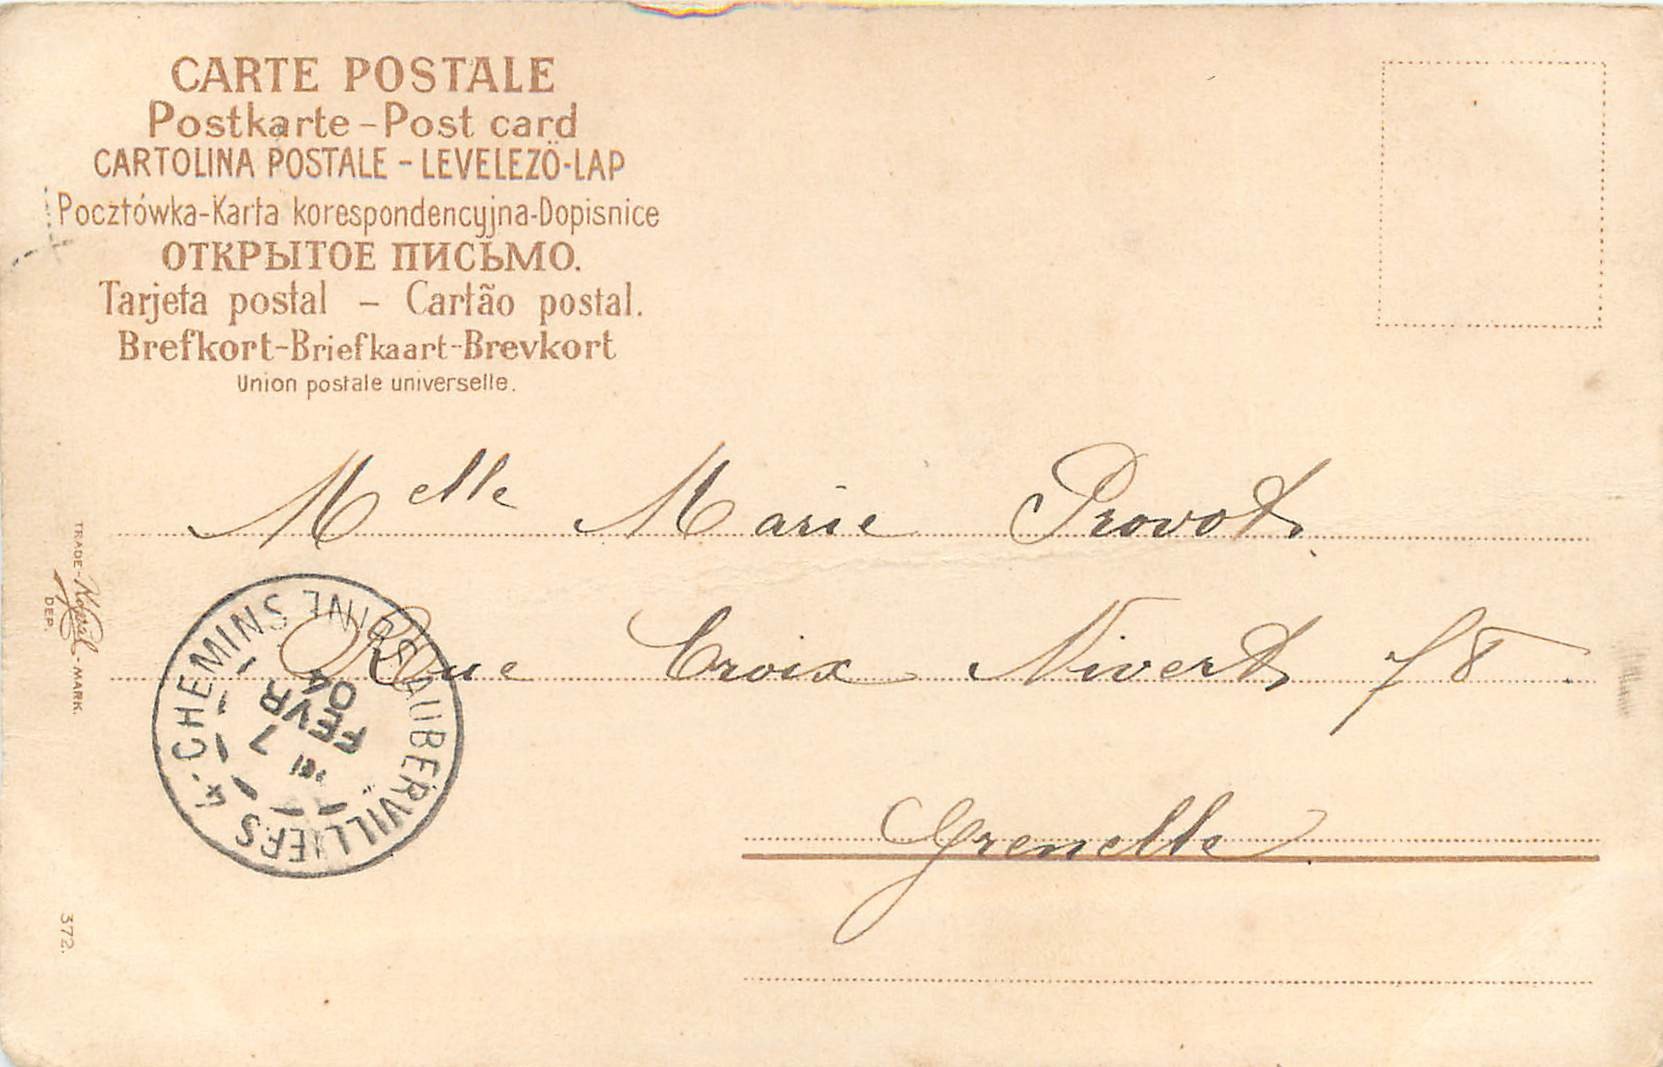 CARTE POSTALE
Postkarte - Post card
CARTOLINA POSTALE - LEVELEZÖ-LAP
Pocztówka-Karta korespondencyjna-Dopisnice
ОТКРЫТОЕ ПИСЬМО.
Tarjeta postal - Cartão postal.
Brefkort-Briefkaart-Brevkort
Union postale universelle.
Melle Marie Provost
Rue Croix Nivert 78.
Grenelle
TRADE-
-MARK.
DEP.
372.
AUBERVILLIERS 4. CHEMINS SEINE
7
FEVR
04